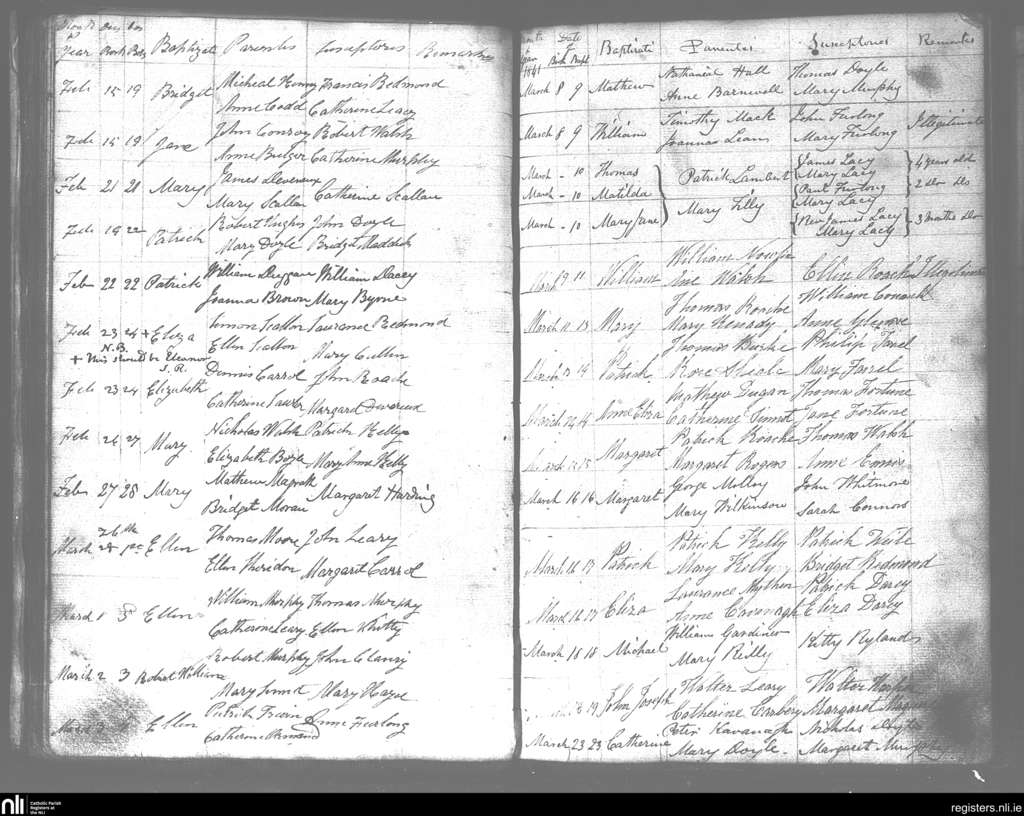 Year Baptizat Parentes Susceptores Remarks
Feb 15 19 Bridget Micheal Francis Redmond
Anne Codd Catherine Leacy
Feb 15 19 Jane John Conroy Robert Walsh
Anne Bulger Catherine Murphy
Feb 21 21 Mary James Devereux
Mary Scallan Catherine Scallan
Feb 19 22 Patrick Robert Hughes John Doyle
Mary Doyle Bridget Maddick
Feb 22 22 Patrick William Duggan William Dacey
Joanna Brown Mary Byrne
Feb 23 24 + Eliza Simon Scallon Laurence Redmond
N.B.
+ This should be Eleanor Ellen Scallon Mary Cullen
S. R.
Feb 23 24 Elizabeth Dennis Carrol John Roache
Catherine Lawlor Margaret Devereux
Feb 26 27 Mary Nicholas Walsh Patrick Kelly
Elizabeth Boyle Mary Anne Kelly
Feb 27 28 Mary Mathew Magrath Margaret Harding
Bridget Moran
26th
March Ellen Thomas Moore John Leary
Ellen Sheridan Margaret Carrol
March 1 Ellen William Murphy Thomas Murphy
Catherine Leary Ellen Whitty
March 2 3 Robert William Robert Murphy John Clancy
Mary Mary Hayes
Ellen Patrick Anne Furlong
Catherine
1841 Birth Bapt Baptizati Parentes Susceptores Remarks
March 8 9 Mathew Nathanial Hall Thomas Doyle
Anne Barnwell Mary Murphy
March 8 9 William Timothy Mack John Furlong Illegitimate
Joannas Leam Mary Furlong
March - 10 Thomas Patrick Lambert James Lacy 4 years old
Mary Lacy
March - 10 Matilda Paul Furlong 2 do do
Mary Lilly Mary Lacy
March - 10 Mary Jane Rev James Lacy 3 months do
Mary Lacy
March 9 11 William William
Ane Walsh Ellen Roach Illegitimate
March 11 13 Mary Thomas Roache William Comarkl
Mary Kenady Anne
March 13 14 Patrick Thomas Burke Philip Farel
Rose Mary Farrel
March 14 14 Anne Eliza Mathew Dugan Thomas Fortune
Catherine Sinnot Jane Fortune
March 15 Margaret Patrick Roache Thomas Walsh
Margaret Rogers Anne
March 16 16 Margaret George Molloy John Whitmore
Mary Wilkinson Sarah Connors
March 16 17 Patrick Patrick Kelly Patrick
Mary Kelly Bridget Redmond
March 16 17 Eliza Laurance Patrick Darcy
Anne Cavenagh Eliza Darcy
March 18 18 Michael William Gardiner Kitty Rylands
Mary Reilly
18 19 John Joseph Walter Leary Walter
Catherine Carbery Margaret
March 23 23 Catherine Peter Kavanagh Nicholas Doyle
Mary Doyle. Margaret Murphy
nli Catholic Parish
Registers at
the NLI
registers.nli.ie